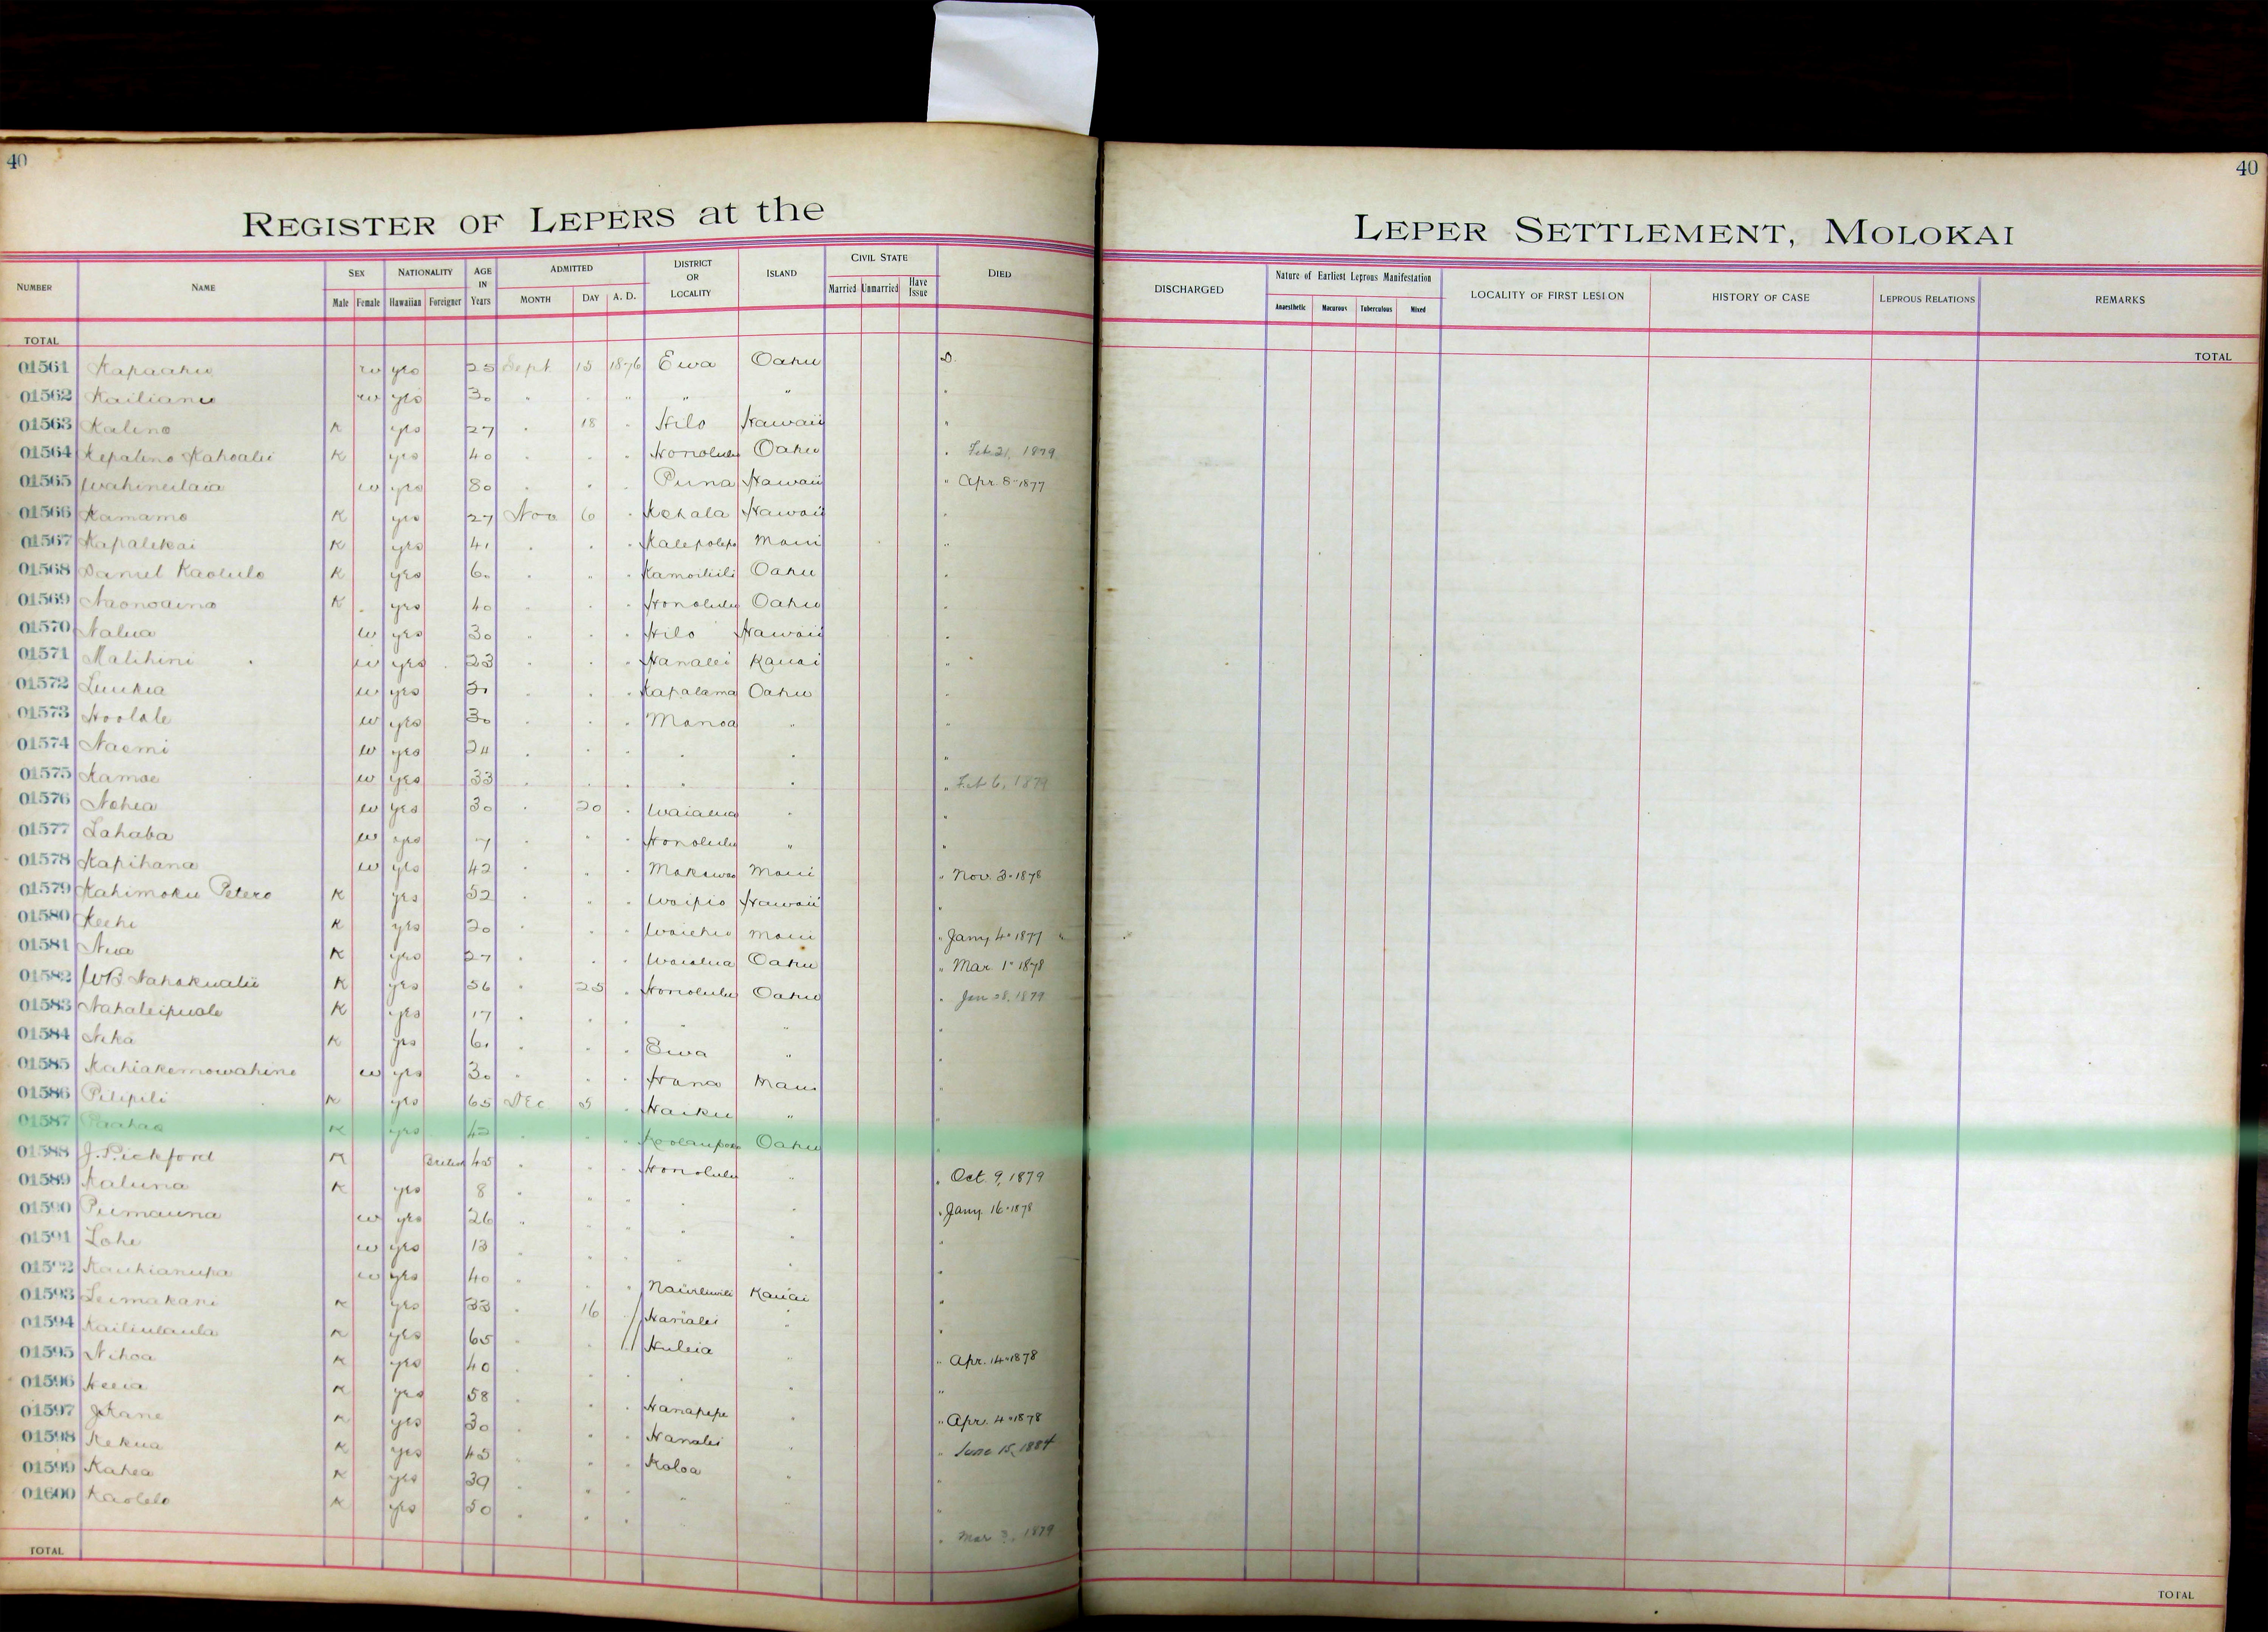 40
REGISTER OF LEPERS at the
NUMBER NAME SEX Male Female NATIONALITY Hawaiian Foreigner AGE IN Years ADMITTED MONTH DAY A. D. DISTRICT OR LOCALITY ISLAND CIVIL STATE Married Unmarried Have Issue DIED
TOTAL
01561 Kapaahu w yes 25 Sept 15 1876 Ewa Oahu D.
01562 Kailianu w yes 30 " " " " " "
01563 Kalino K yes 27 " 18 " Hilo Hawaii "
01564 Kepalino Kahoalii K yes 40 " " " Honolulu Oahu " Feb 21, 1879
01565 Wahineilaia w yes 80 " " " Puna Hawaii " Apr. 8" 1877
01566 Kamamo K yes 27 Nov 6 " Kohala Hawaii "
01567 Kapalekai K yes 41 " " " Kalepolepo Maui "
01568 Daniel Kaolulo K yes 60 " " " Kamoiliili Oahu "
01569 Naonoaina K yes 40 " " " Honolulu Oahu "
01570 Nalua w yes 30 " " " Hilo Hawaii "
01571 Malihini w yes 23 " " " Hanalei Kauai "
01572 Luukia w yes " " " Kapalama Oahu "
01573 Hoolale w yes 30 " " " Manoa " "
01574 Naomi w yes 24 " " " " " "
01575 Kamae w yes 33 " " " " " " Feb 6, 1879
01576 Nohea w yes 30 " 20 " Waialua " "
01577 Lahaba w yes 7 " " " Honolulu " "
01578 Kapihana w yes 42 " " " Makawao Maui " Nov. 3" 1878
01579 Kahimoku Petero K yes 52 " " " Waipio Hawaii "
01580 Keehi K yes 20 " " " Waiehu Maui " Jany 4" 1877 "
01581 Nua K yes 27 " " " Waialua Oahu " Mar. 1" 1878
01582 WB Nahokualii K yes 56 " 25 " Honolulu Oahu " Jan 28, 1879
01583 Nahaleipuole K yes 17 " " " " " "
01584 Nika K yes 61 " " " Ewa " "
01585 Kahiakemowahine w yes 30 " " " Hana Maui "
01586 Pilipili K yes 65 Dec 5 " Haiku " "
01587 Paahao K yes 42 " " " Koolaupoko Oahu "
01588 J. Pickford K British 45 " " " Honolulu " " Oct. 9, 1879
01589 Kaluna K yes 8 " " " " " " Jany 16" 1878
01590 Puimauna w yes 26 " " " " " "
01591 Lohe w yes 13 " " " " " "
01592 Kauhianupa w yes 40 " " " Nawiliwili Kauai "
01593 Leimakani K yes 33 " 16 " Hanalei " "
01594 Kailiulaula K yes 65 " " " Huleia " " Apr. 14" 1878
01595 Nihoa K yes 40 " " " " " "
01596 Heeia K yes 58 " " " Hanapepe " " Apr. 4" 1878
01597 J Kane K yes 30 " " " Hanalei " " June 15, 1884
01598 Kekua K yes 45 " " " Koloa " "
01599 Kahea K yes 39 " " " " " "
01600 Kaolelo K yes 50 " " " " Mar 3, 1879
TOTAL
40
LEPER SETTLEMENT, MOLOKAI
DISCHARGED Nature of Earliest Leprous Manifestation Anaesthetic Macurous Tuberculous Mixed LOCALITY OF FIRST LESION HISTORY OF CASE LEPROUS RELATIONS REMARKS
TOTAL
TOTAL